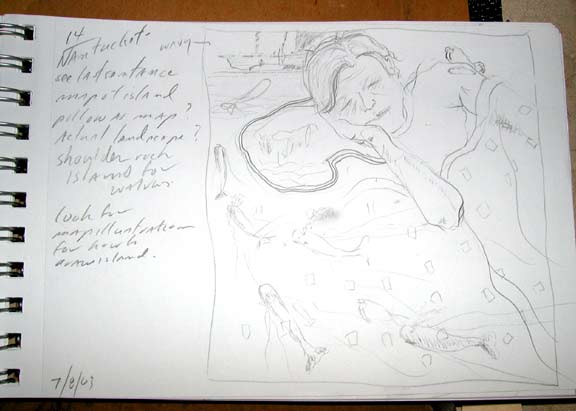 14
Nantucket-
wavy
map of island
pillow as map?
Actual landscape?
shoulder rock
island for
look for
map illustration
for how to
draw island.
7/8/03